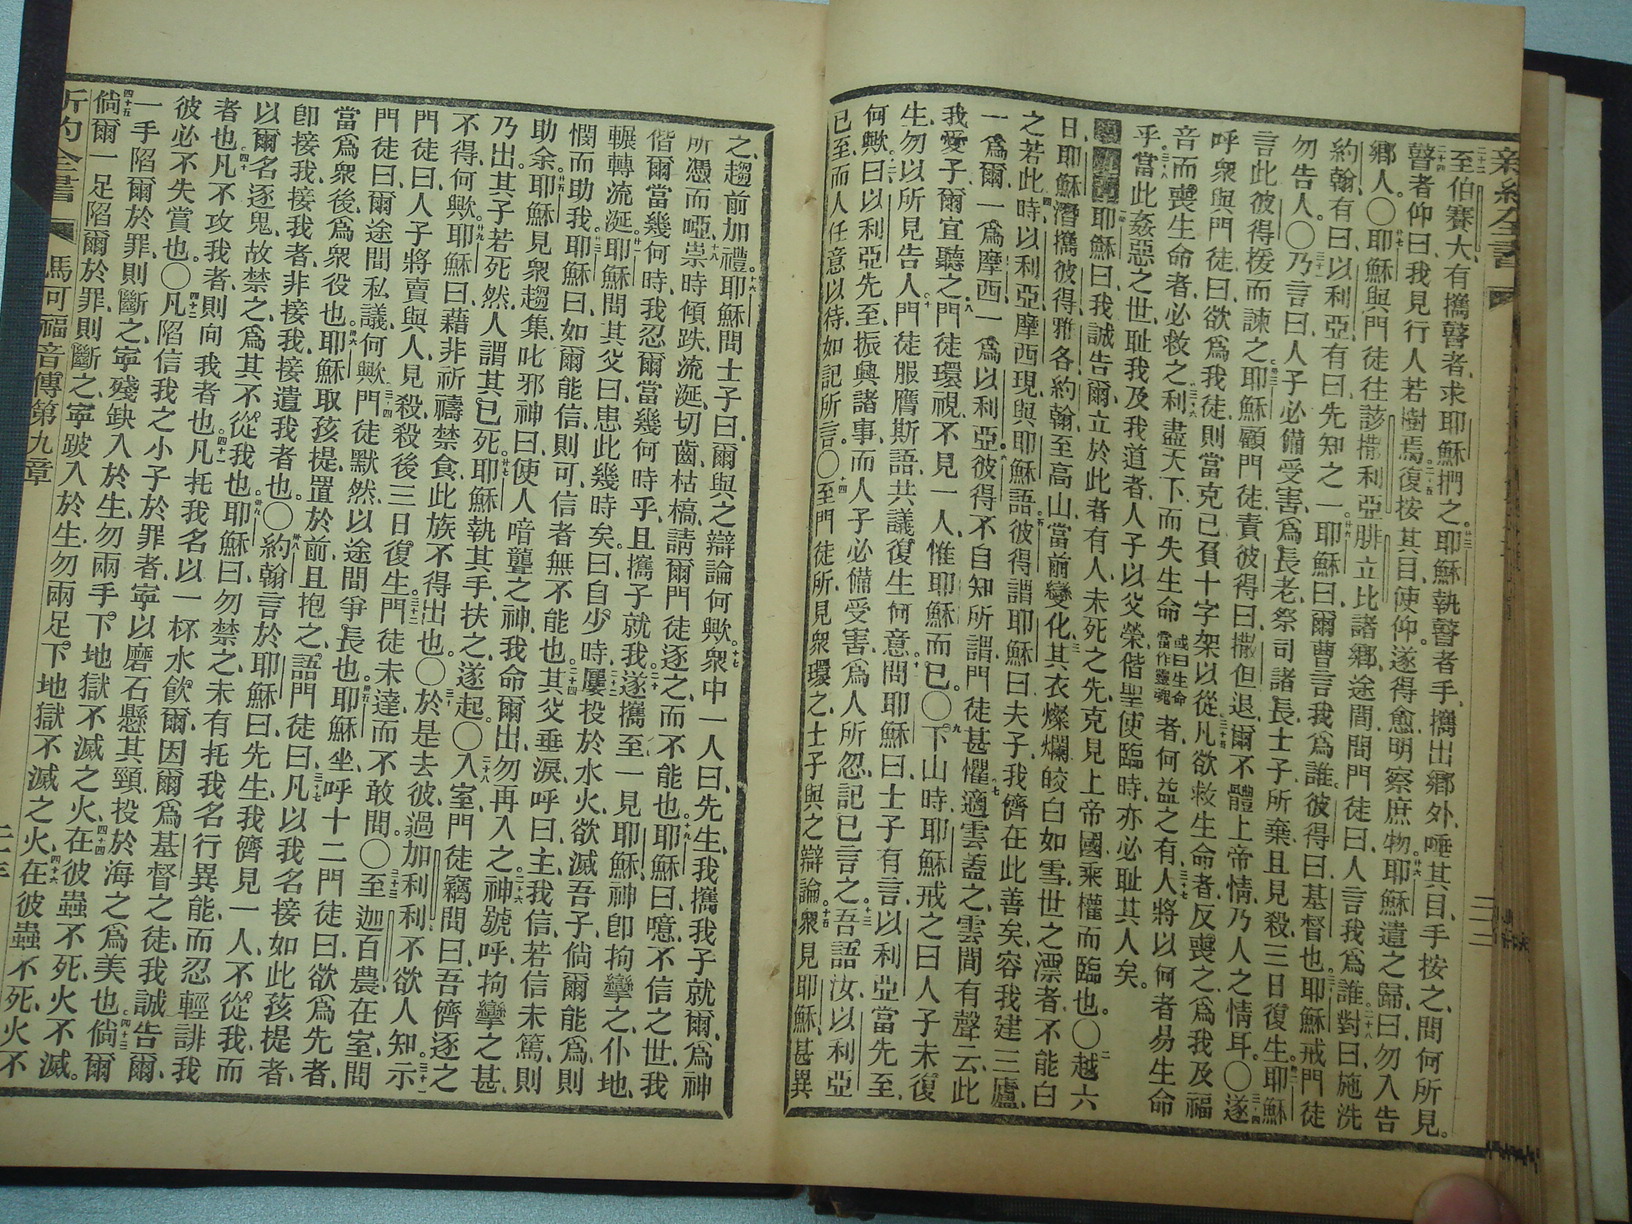 新約全書
二三
至伯賽大、有攜瞽者、求耶穌捫之、耶穌執瞽者手、攜出鄉外、唾其目、手按之、問何所見。
瞽者仰曰、我見行人若樹焉、復按其目、使仰、遂得愈、明察庶物、耶穌遣之歸、曰、勿入告
鄉人。〇耶穌與門徒往該撒利亞腓立比諸鄉、途間問門徒曰、人言我爲誰、對曰、施洗
約翰、有曰以利亞、有曰先知之一、耶穌曰、爾曹言我爲誰、彼得曰、基督也、耶穌戒門徒
勿告人。〇乃言曰、人子必備受害、爲長老祭司諸長士子所棄、且見殺、三日復生、耶穌
言此、彼得援而諫之、耶穌顧門徒、責彼得曰、撒但退、爾不體上帝情、乃人之情耳。〇遂
呼衆與門徒曰、欲爲我徒、則當克己、負十字架以從、凡欲救生命者、反喪之、爲我及福
音而喪生命者、必救之、利盡天下、而失生命或曰生命當作靈魂者、何益之有、人將以何者易生命
乎、當此姦惡之世、耻我及我道者、人子以父榮、偕聖使臨時、亦必耻其人矣。
耶穌曰、我誠告爾、立於此者、有人未死之先、克見上帝國乘權而臨也。〇越六
日、耶穌潛攜彼得雅各約翰至高山、當前變化、其衣燦爛、皎白如雪、世之漂者、不能白
之若此、時以利亞摩西現、與耶穌語、彼得謂耶穌曰、夫子、我儕在此善矣、容我建三廬、
一爲爾、一爲摩西、一爲以利亞、彼得不自知所謂、門徒甚懼、適雲蓋之、雲間有聲云、此
我愛子、爾宜聽之、門徒環視、不見一人、惟耶穌而已。〇下山時、耶穌戒之曰、人子未復
生、勿以所見告人、門徒服膺斯語、共議復生何意、問耶穌曰、士子有言、以利亞當先至、
何歟、曰、以利亞先至、振興諸事、而人子必備受害、爲人所忽、記已言之、吾語汝、以利亞
已至、而人任意以待、如記所言。〇至門徒所、見衆環之、士子與之辯論、衆見耶穌、甚異
之、趨前加禮。耶穌問士子曰、爾與之辯論何歟。衆中一人曰、先生、我攜我子就爾、爲神
所憑而啞、祟時傾跌流涎、切齒枯槁、請爾門徒逐之、而不能也、耶穌曰、噫、不信之世、我
偕爾當幾何時、我忍爾當幾何時乎、且攜子就我、遂攜至、一見耶穌、神卽拘攣之、仆地、
輾轉流涎、耶穌問其父曰、患此幾時矣、曰、自少、時屢投於水火、欲滅吾子、倘爾能爲、則
憫而助我、耶穌曰、如爾能信、則可、信者無不能也、其父垂淚、呼曰、主、我信、若信未篤、則
助余、耶穌見衆趨集、叱邪神曰、使人喑聾之神、我命爾出、勿再入之、神號呼、拘攣之甚、
乃出、其子若死然、人謂其已死、耶穌執其手扶之、遂起。〇入室、門徒竊問曰、吾儕逐之
不得、何歟、耶穌曰、藉非祈禱禁食、此族不得出也。〇於是去彼、過加利利、不欲人知、示
門徒曰、人子將賣與人、見殺、殺後三日復生、門徒未達、而不敢問。〇至迦百農、在室、問
門徒曰、爾途間私議何歟、門徒默然、以途間爭長也、耶穌坐、呼十二門徒曰、欲爲先者、
當爲衆後、爲衆役也、耶穌取孩提、置於前、且抱之、語門徒曰、凡以我名接如此孩提者、
卽接我、接我者、非接我、接遣我者也。〇約翰言於耶穌曰、先生、我儕見一人、不從我、而
以爾名逐鬼、故禁之、爲其不從我也、耶穌曰、勿禁之、未有托我名行異能、而忍輕誹我
者也、凡不攻我者、則向我者也、凡托我名、以一杯水飮爾、因爾爲基督之徒、我誠告爾、
彼必不失賞也。〇凡陷信我之小子於罪者、寧以磨石懸其頸、投於海之爲美也、倘爾
一手陷爾於罪、則斷之、寧殘缺入於生、勿兩手下地獄不滅之火、在彼蟲不死、火不滅。
倘爾一足陷爾於罪、則斷之、寧跛入於生、勿兩足下地獄不滅之火、在彼蟲不死、火不
新約全書
馬可福音傳第九章